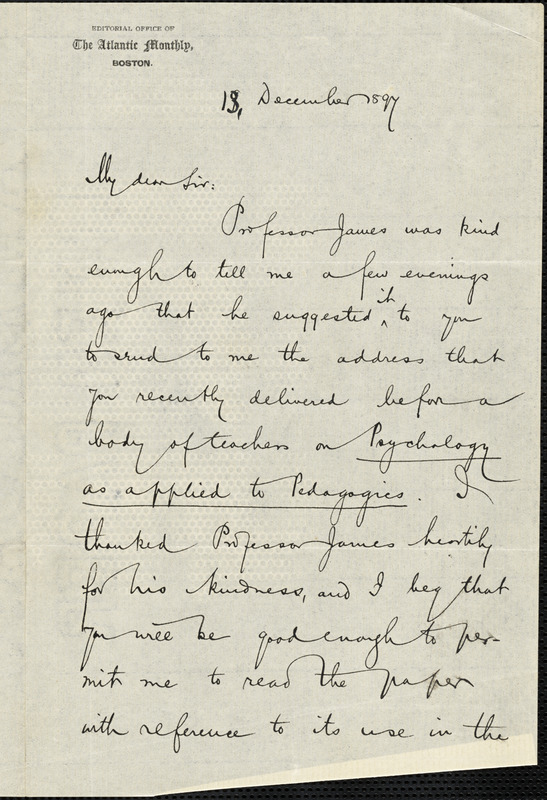 EDITORIAL OFFICE OF
The Atlantic Monthly,
BOSTON.
18, December 1897
My dear Sir:
Professor James was kind
enough to tell me a few evenings
ago that he suggested it to you
to send to me the address that
you recently delivered before a
body of teachers on Psychology
as applied to Pedagogics. I
thanked Professor James heartily
for his kindness, and I beg that
you will be good enough to per-
mit me to read the paper
with reference to its use in the